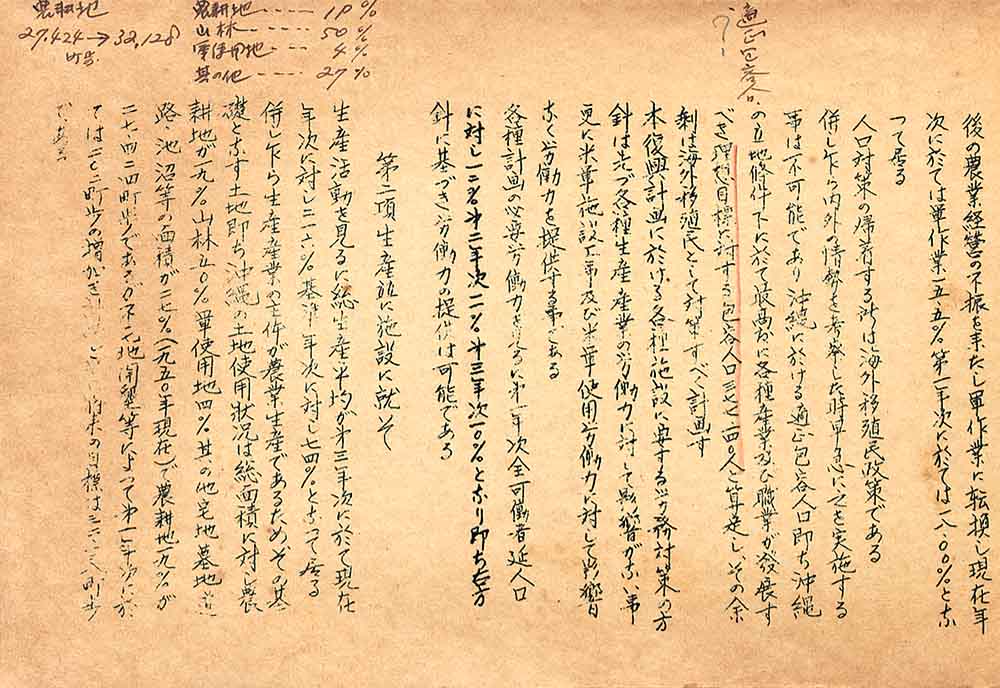 農耕地
27,424→32,128
町歩
農耕地----19%
山林----50%
軍使用地----4%
其の他----27%
適正包容人口
後の農業経営の不振を来たし軍作業に転換し現在年
次に於ては軍作業一五五%第一年次に於ては一八.〇〇%とな
つて居る
人口対策の帰着する所は海外移殖民政策である
併し乍ら内外の情勢を考察した時早急に之を実施する
事は不可能であり沖縄に於ける適正包容人口即ち沖縄
の立地條件下に於て最高に各種産業及び職業が発展す
べき理想目標に対する包容人口三七七一四〇人と算定し、その余
剰は海外移殖民として対策すべく計画す
本復興計画に於ける各種施設に要する労務対策の方
針は先づ各種生産産業の労働力に対して影響がない事
更に米軍施設工事及び米軍使用労働力に対して影響
なく労働力を提供する事である
各種計画の必要労働力を見るに第一年次全可働者延人口
に対し一二%第二年次一二%第三年次一〇%となり即ち右方
針に基づき労働力の提供は可能である
第二項 生産並に施設に就て
生産活動を見るに総生産平均が第三年次に於て現在
年次に対し二一六%基準年次に対し七四%となつて居る
併し乍ら生産産業の主体が農業生産であるためその基
礎となす土地即ち沖縄の土地使用状況は総面積に対し農
耕地が一九%山林五〇%軍使用地四%其の他宅地墓地道
路、池沼等の面積が二七%(一九五〇年現在)で農耕地一九%が
二七、四二四町歩であるが不毛地開墾等によつて第一年次に於
ては 町歩の増が 将来の目標は 町歩
である